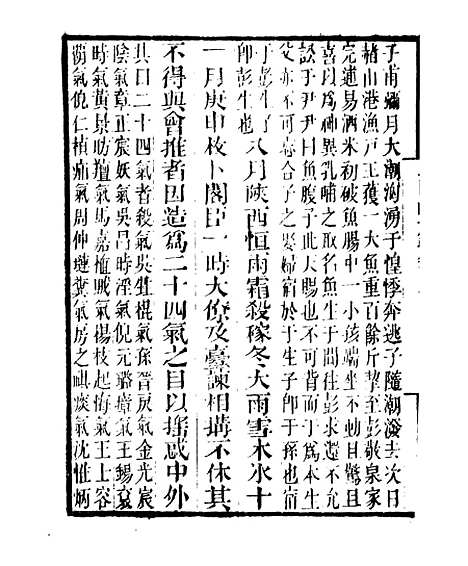 子甫彌月大潮洶湧于惶悸奔逃子隨潮沒去次日
赭山港漁戸王獲一大魚重百餘斤挈至彭敬泉家
完逋易酒米初破魚腸中一小孩端坐不動目驚且
喜以爲神異孔哺之取名魚生于聞往彭索還不允
訟于尹尹曰魚腹子天賜也不可還而于爲本生
父亦不可忘合子之娶婦宿於于生子即于孫也宿
于彭生子即彭生也八月陝西恒雨霜殺稼冬大雨雪木冰十
一月庚申枚卜閣臣一時大僚及臺諫相搆不休其
不得與會推者因造爲二十四氣之目以搖惑中外
其曰二十四氣者殺氣吳甡棍氣孫晉戾氣金光宸
陰氣章正宸妖氣吳昌時淫氣倪元璐瘴氣王錫袞
時氣黃景昉羶氣馬嘉植賊氣楊枝起悔氣王士容
霸氣倪仁禎疝氣周仲璉糞氣房之祺痰氣沈惟炳